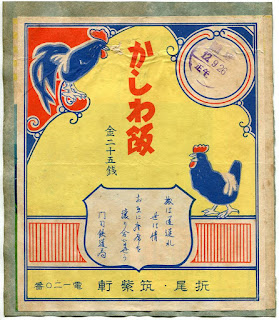 かしわ飯
金二十五銭
12.9.26
旅は道連れ
世は情
お互に座席を
譲り合ひませう
門司鉄道局
折尾・筑紫軒 電一二〇番